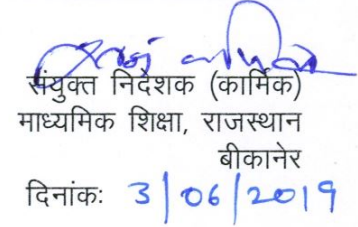 संयुक्त निदेशक (कार्मिक)
माध्यमिक शिक्षा, राजस्थान
बीकानेर
दिनांकः 3/06/2019